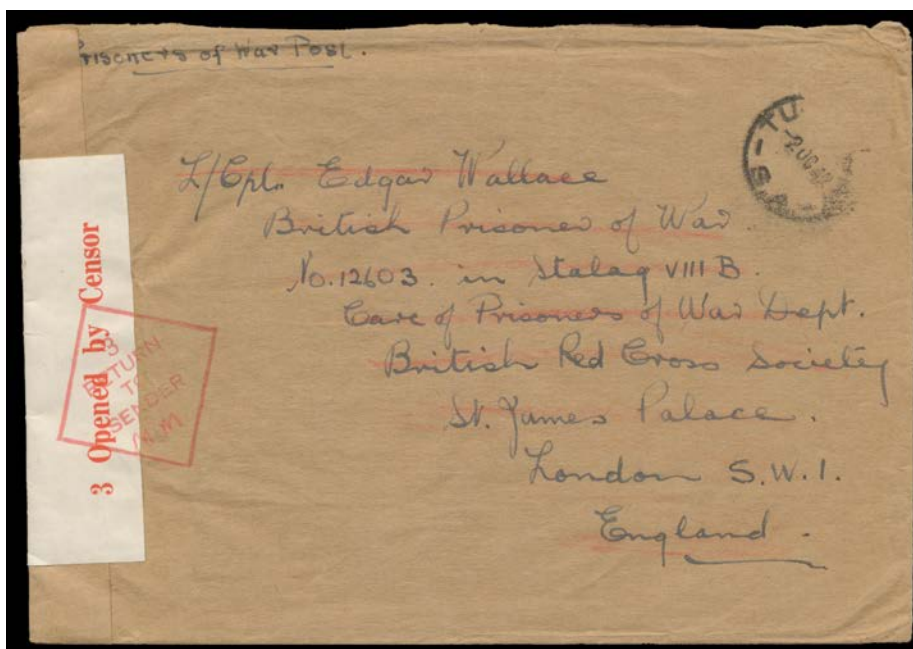 Prisoners of War Post.
L/Cpl. Edgar Wallace
British Prisoner of War
No. 12603. in Stalag VIII B.
Care of Prisoners of War Dept.
British Red Cross Society
St. James Palace.
London S.W.1.
England.
3 Opened by Censor
3
RETURN
TO
SENDER
M.M